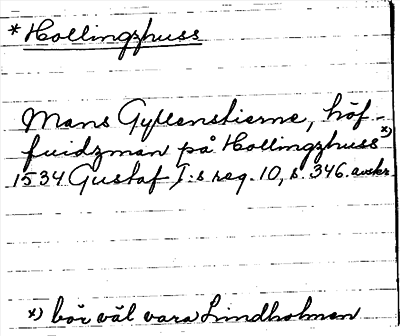 * Hollingzhuss
Mans Gyllenstierne, höf-
fuidzman på Hollingzhuss x)
1534 Gustaf I:s reg. 10, s. 346. avskr.
x) bör väl vara Lindholmen